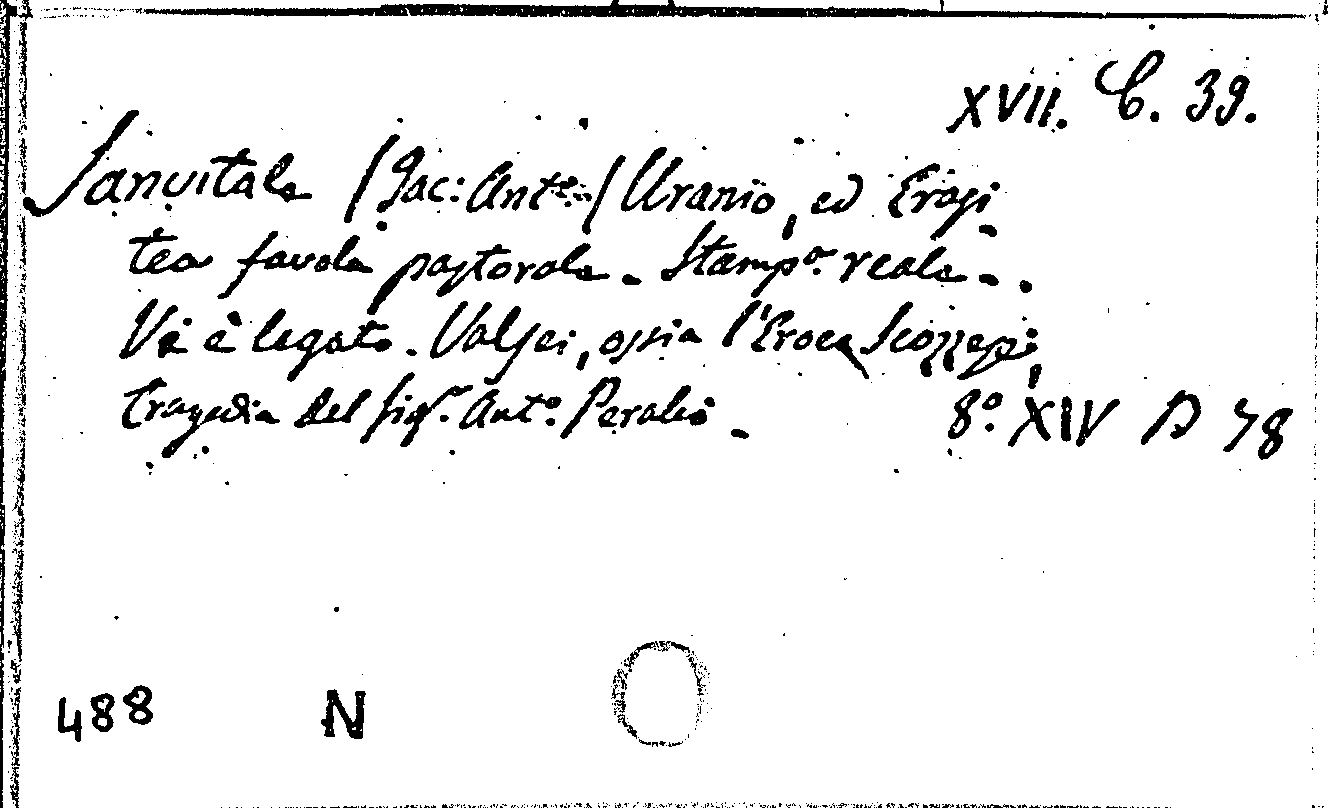 XVII. C. 39.
Sanvitale /Jac: Ant.º/ Uranio, ed Erasi
tea favola pastorale. Stamp.ª reale.
Vi è legato. Valsei, ossia l'Eroe Scozzese,
tragedia del sig.r Ant.º Perabò. 8.º XIV D 78
488 N